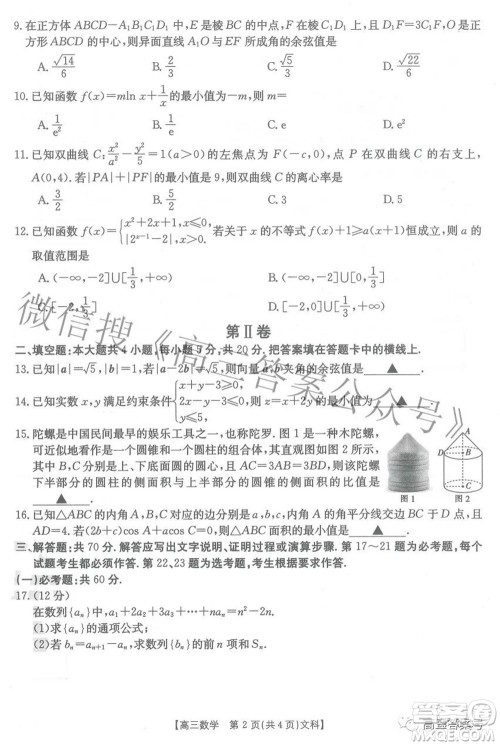 9.在正方体ABCD-A₁B₁C₁D₁中,E是棱BC的中点,F在棱C₁D₁上,且D₁F=3C₁F,O是正
方形ABCD的中心,则异面直线A₁O与EF所成角的余弦值是
A.√14/6 B.2/3 C.√5/3 D.√22/6
10.已知函数f(x)=mln x+1/x的最小值为-m,则m=
A.1/e² B.1/e C.e D.e²
11.已知双曲线C:x²/a²-y²/5=1(a>0)的左焦点为F(-c,0),点P在双曲线C的右支上,
A(0,4).若|PA|+|PF|的最小值是9,则双曲线C的离心率是
A.3/2 B.5/2 C.3 D.5
12.已知函数f(x)={x²+2x+1,x≤0 |2ˣ⁻¹-2|,x>0,若不等式f(x)+1≥a(x+1)恒成立,则a的
取值范围是
A.(-∞,-2]∪[1/3,+∞) B.(-∞,-2]∪[1/3,+∞)
C.[-2,1/3] D.[1/3,+∞)
第Ⅱ卷
二、填空题:本大题共4小题,每小题5分,共20分.把答案填在答题卡中的横线上.
13.已知|a|=√5,|b|=1,且|a+b|=√5,则向量a,b夹角的余弦值是 ▲ .
14.已知实数x,y满足约束条件{x+y-3≥0 2x-y-3≤0 x-y≥0,则z=x+2y的最小值为 ▲ .
15.陀螺是中国民间最早的娱乐工具之一,也称陀罗.图1是一种木陀螺,
可近似地看作是一个圆锥和一个圆柱的组合体,其直观图如图2所示,
其中A是圆锥的顶点,B,C分别是圆柱的上、下底面圆的圆心,且AC=3AB=3BD,则该陀螺
下半部分的圆柱的侧面积与上半部分的圆锥的侧面积的比值是
▲ .
图1 图2
16.已知△ABC的内角A,B,C对应的边分别是a,b,c,内角A的角平分线交边BC于D点,且
AD=4.若(2b+c)cos A+acos C=0,则△ABC面积的最小值是 ▲ .
三、解答题:共70分.解答应写出文字说明、证明过程或演算步骤.第17~21题为必考题,每个
试题考生都必须作答.第22、23题为选考题,考生根据要求作答.
(一)必考题:共60分.
17.(12分)
在数列{aₙ}中,a₁+2a₂+3a₃+…+naₙ=n²-2n.
(1)求{aₙ}的通项公式;
(2)若bₙ=aₙ₊₁-aₙ,求数列{bₙ}的前n项和Sₙ.
【高三数学 第2页(共4页)文科】
微信搜《高三答案公众号》
高三答案号